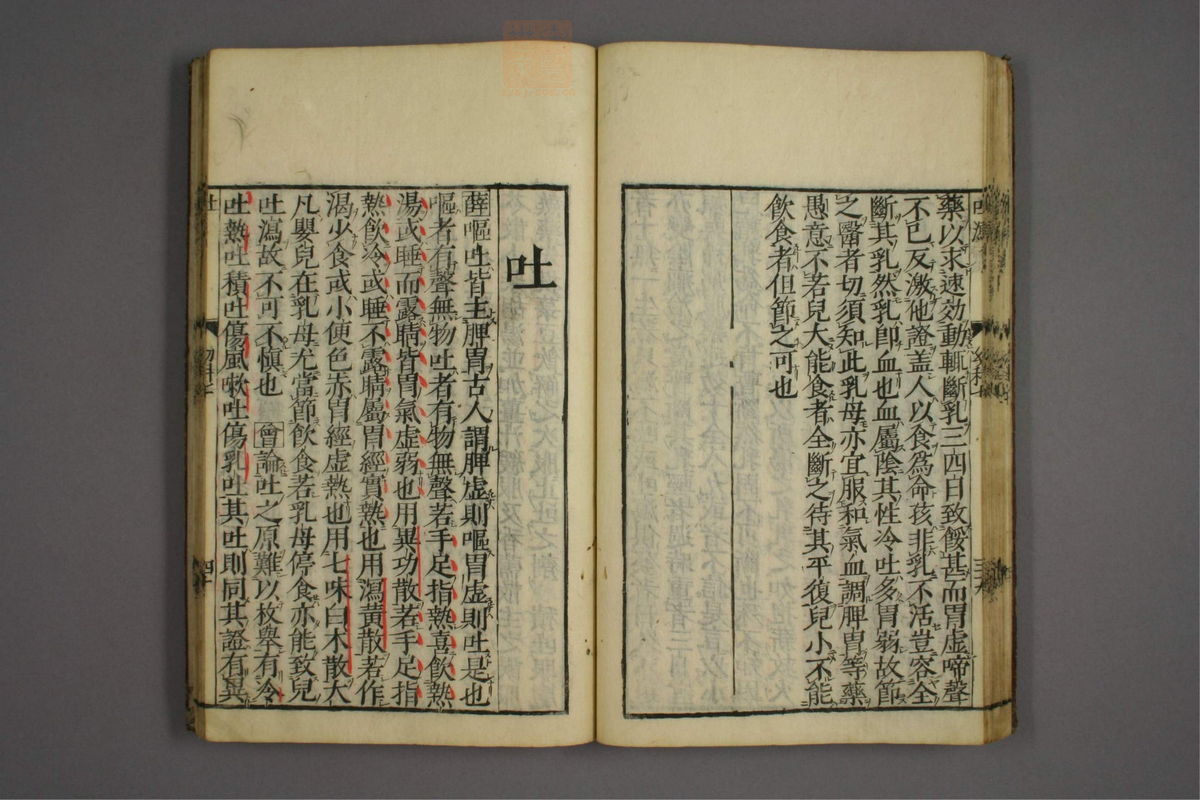 藥以求速効動輒斷乳三四日致餒甚而胃虛啼聲
不已反激他證盖人以食爲命孩非乳不活豈容全
斷其乳然乳即血也血屬陰其性冷吐多胃弱故節
之醫者切須知此乳母亦宜服和氣血調脾胃等藥
愚意不若兒大能食者全斷之待其平復兒小不能
飲食者但節之可也
吐
薛嘔吐皆主脾胃古人謂脾虛則嘔胃虛則吐是也
嘔者有聲無物吐者有物無聲若手足指熱喜飲熱
湯或睡而露睛皆胃氣虛弱也用異功散若手足指
熱飲冷或睡不露睛屬胃經實熱也用瀉黃散若作
渴少食或小便色赤胃經虛熱也用七味白朮散大
凡嬰兒在乳母尤當節飲食若乳母停食亦能致兒
吐瀉故不可不愼也 曾論吐之原難以枚舉有冷
吐熱吐積吐傷風嗽吐傷乳吐其吐則同其證有異